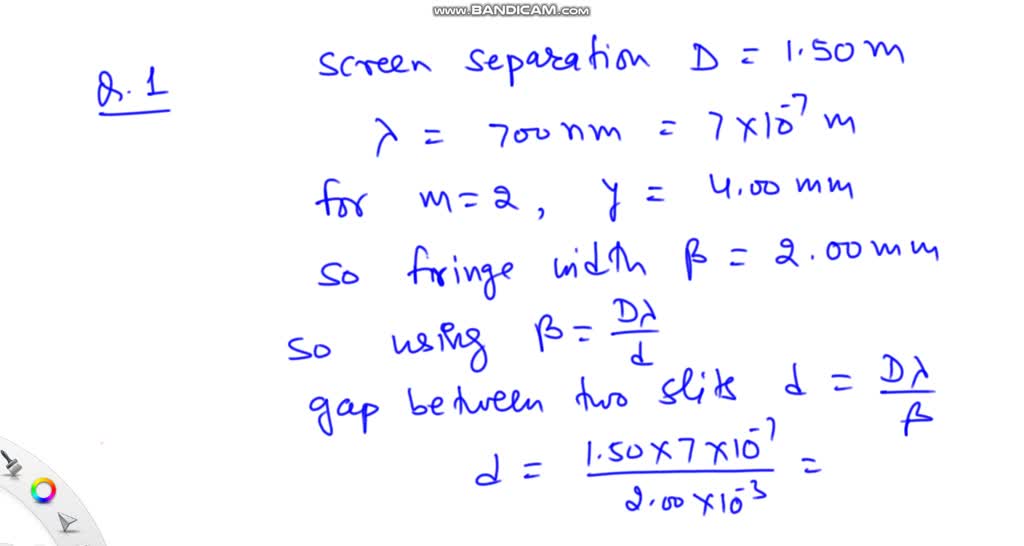 www.BANDICAM.com
Q.1 screen separation D = 1.50 m
λ = 700 nm = 7×10⁻⁷ m
for m=2, y = 4.00 mm
so fringe width β = 2.00 mm
so using β = Dλ/d
gap between two slits d = Dλ/β
d = 1.50×7×10⁻⁷/2.00×10⁻³ =